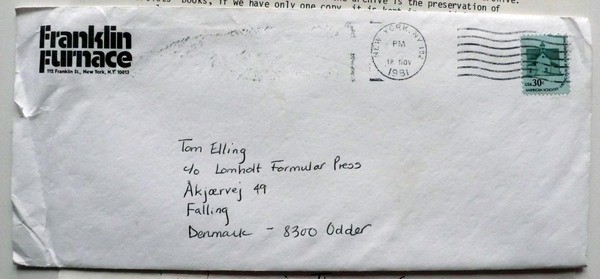 books, if we have only one copy, it is
archive is the preservation of
Franklin
Furnace
112 Franklin St., New York, N.Y. 10013
NEW YORK, NY
PM
18 NOV
1981
USA 30c
AMERICAN SCHOOLS
Tom Elling
c/o Lomholt Formular Press
Åkjærvej 49
Falling
Denmark - 8300 Odder